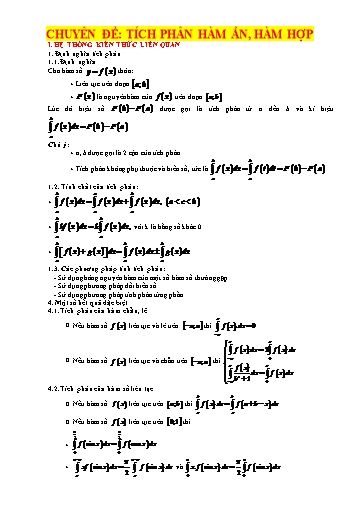 CHUYÊN ĐỀ: TÍCH PHÂN HÀM ẨN, HÀM HỢP
I. HỆ THỐNG KIẾN THỨC LIÊN QUAN
1. Định nghĩa tích phân
1.1. Định nghĩa
Cho hàm số y = f(x) thỏa:
• Liên tục trên đoạn [a;b]
• F(x) là nguyên hàm của f(x) trên đoạn [a;b]
Lúc đó hiệu số F(b) − F(a) được gọi là tích phân từ a đến b và kí hiệu
∫_a^b f(x)dx = F(b) − F(a)
Chú ý:
• a, b được gọi là 2 cận của tích phân
• Tích phân không phụ thuộc và biến số, tức là ∫_a^b f(x)dx = ∫_a^b f(t)dt = F(b) − F(a)
1.2. Tính chất của tích phân:
• ∫_a^b f(x)dx = ∫_a^c f(x)dx + ∫_c^b f(x)dx, (a < c < b)
• ∫_a^b kf(x)dx = k∫_a^b f(x)dx, với k là hằng số khác 0
• ∫_a^b [f(x) ± g(x)]dx = ∫_a^b f(x)dx ± ∫_a^b g(x)dx
1.3. Các phương pháp tính tích phân:
- Sử dụng bảng nguyên hàm của một số hàm số thường gặp
- Sử dụng phương pháp đổi biến số
- Sử dụng phương pháp tính phân từng phần
4. Một số kết quả đặc biệt
4.1. Tích phân của hàm chẵn, lẻ
Nếu hàm số f(x) liên tục và lẻ trên [−a;a] thì ∫_{−a}^a f(x)dx = 0
Nếu hàm số f(x) liên tục và chẵn trên [−a;a] thì { ∫_{−a}^a f(x)dx = 2∫_0^a f(x)dx
∫_{−a}^a f(x)/(b^x + 1) dx = ∫_0^a f(x)dx
4.2. Tích phân của hàm số liên tục
Nếu hàm số f(x) liên tục trên [a;b] thì ∫_a^b f(x)dx = ∫_a^b f(a + b − x)dx
Nếu hàm số f(x) liên tục trên [0;1] thì
• ∫_0^{π/2} f(sin x)dx = ∫_0^{π/2} f(cos x)dx